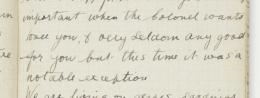 important when the Colonel wants
to see you, & very seldom any good
for you but this time it was a
notable exception
We are living on